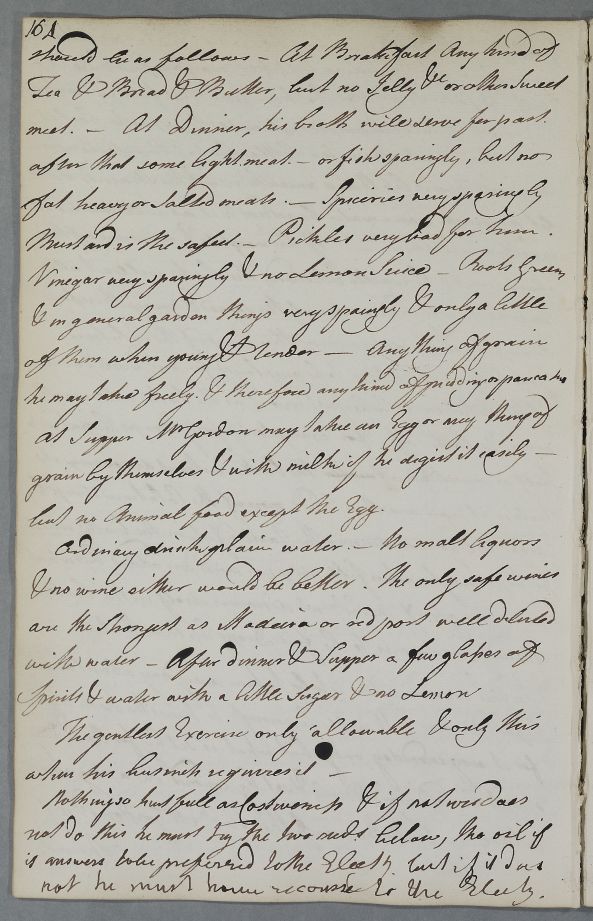 161
should be as follows – At Breakfast Any kind of
Tea & Bread & Butter, but no Jelly &c or other Sweet
meat. – At Dinner, his broth will serve for part
after that some light meat – or fish sparingly, but no
fat heavy or Salted meats. – Spiceries very sparingly
Mustard is the safest. – Pickles very bad for him.
Vinegar very sparingly & no Lemon Juice – Roots Greens
& in general garden things very sparingly & only a little
of them when young & tender – Any thing of grain
he may take freely. & therefore any kind of pudding or pancake
At Supper Mr Gordon may take an Egg or any thing of
grain by themselves & with milk if he digest it easily –
but no Animal food except the Egg.
Ordinary drink plain water. – No malt liquors
& no wine either would be better. The only safe wines
are the Strongest as Madeira or red port well diluted
with water – After dinner & Supper a few glasses of
Spirits & water with a little Sugar & no Lemon
The gentlest Exercise only allowable & only this
when his business requires it –
Nothing so hurtfull as Costiveness & if not does
not do this he must try the two meds below, the oil if
it answers to be preferred to the Electy but if it does
not he must have recourse to the Electy.